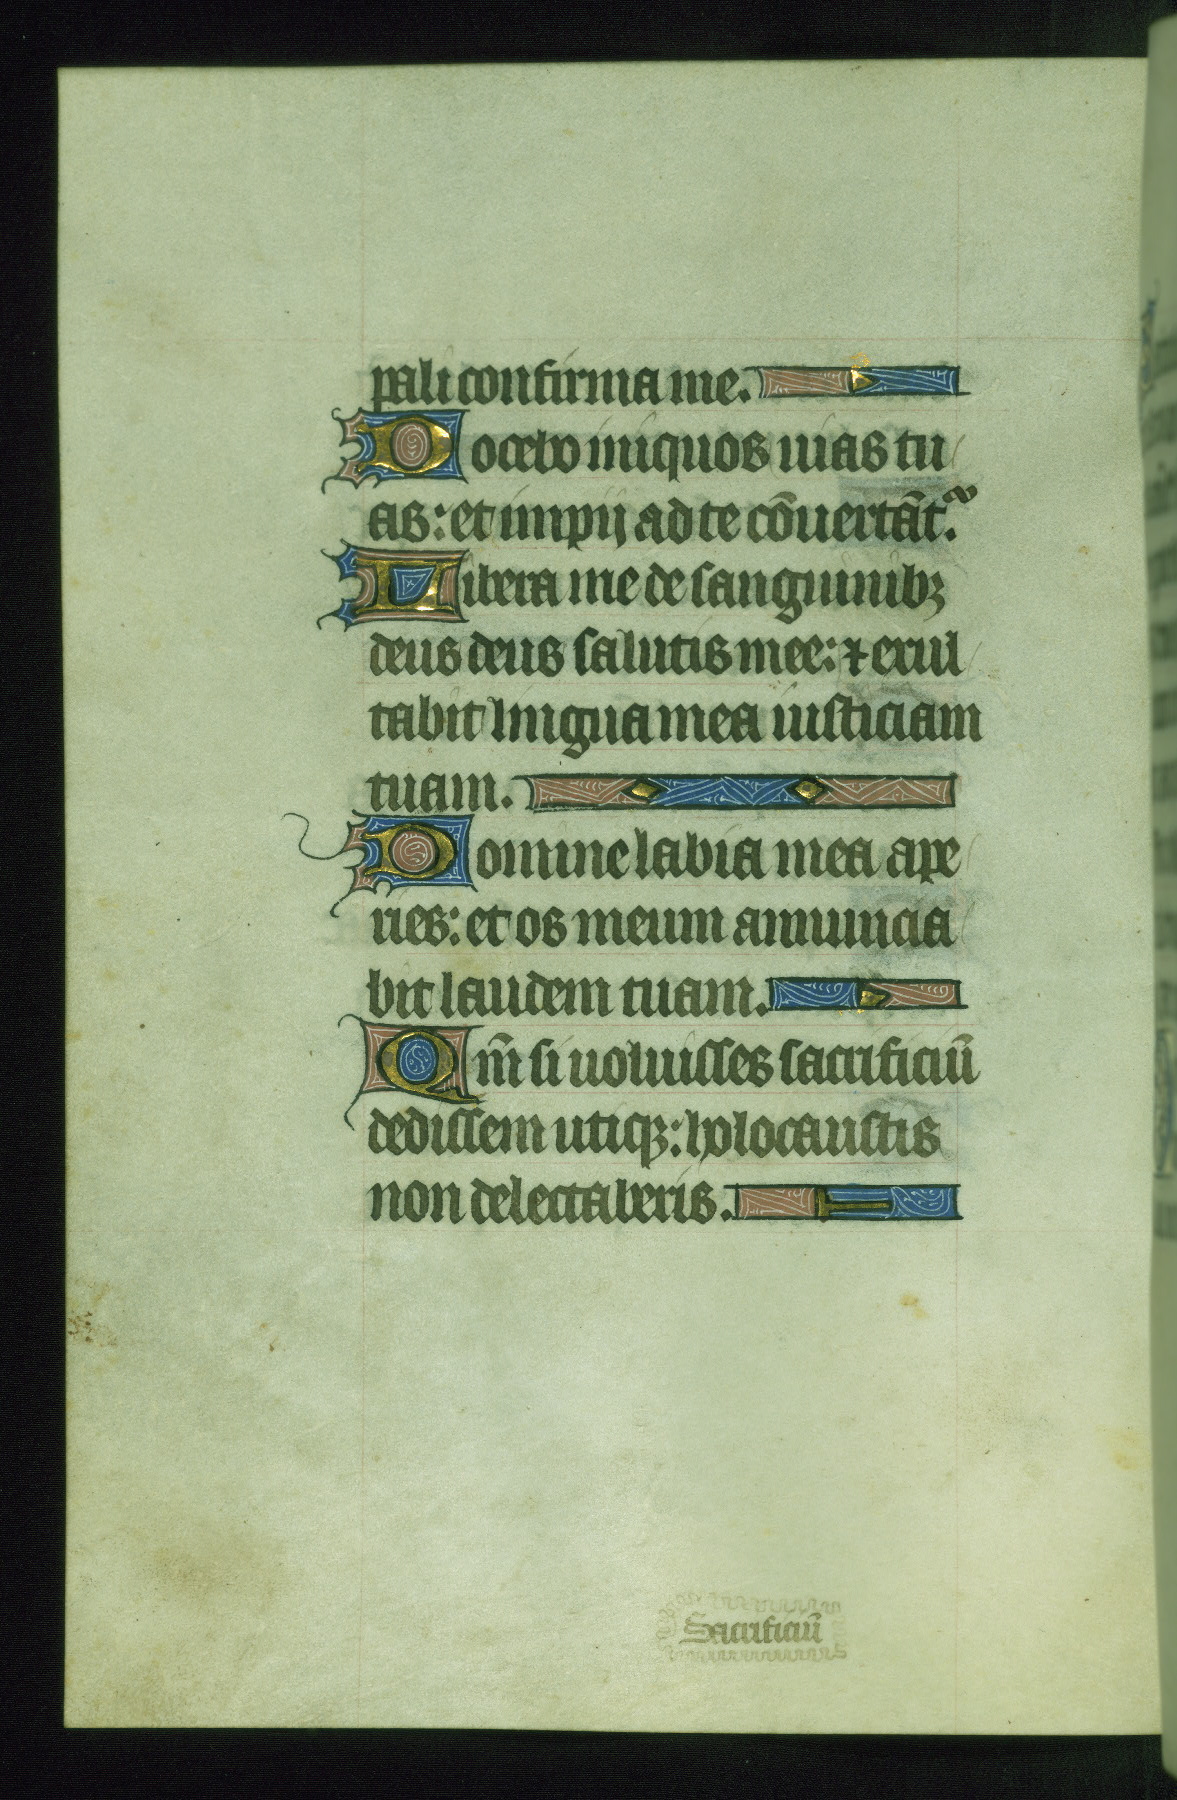 pali confirma me.
Docebo iniquos uias tu
as: et impij ad te cōuertāt̄.
Libera me de sanguinibꝫ
deus deus salutis mee: ⁊ exul
tabit lingua mea iusticiam
tuam.
Domine labia mea ape
ries: et os meum annuncia
bit laudem tuam.
Qm̄ si uoluisses sacrificiū
dedissem utiqꝫ: holocaustis
non delectaberis.
Sacrificiū